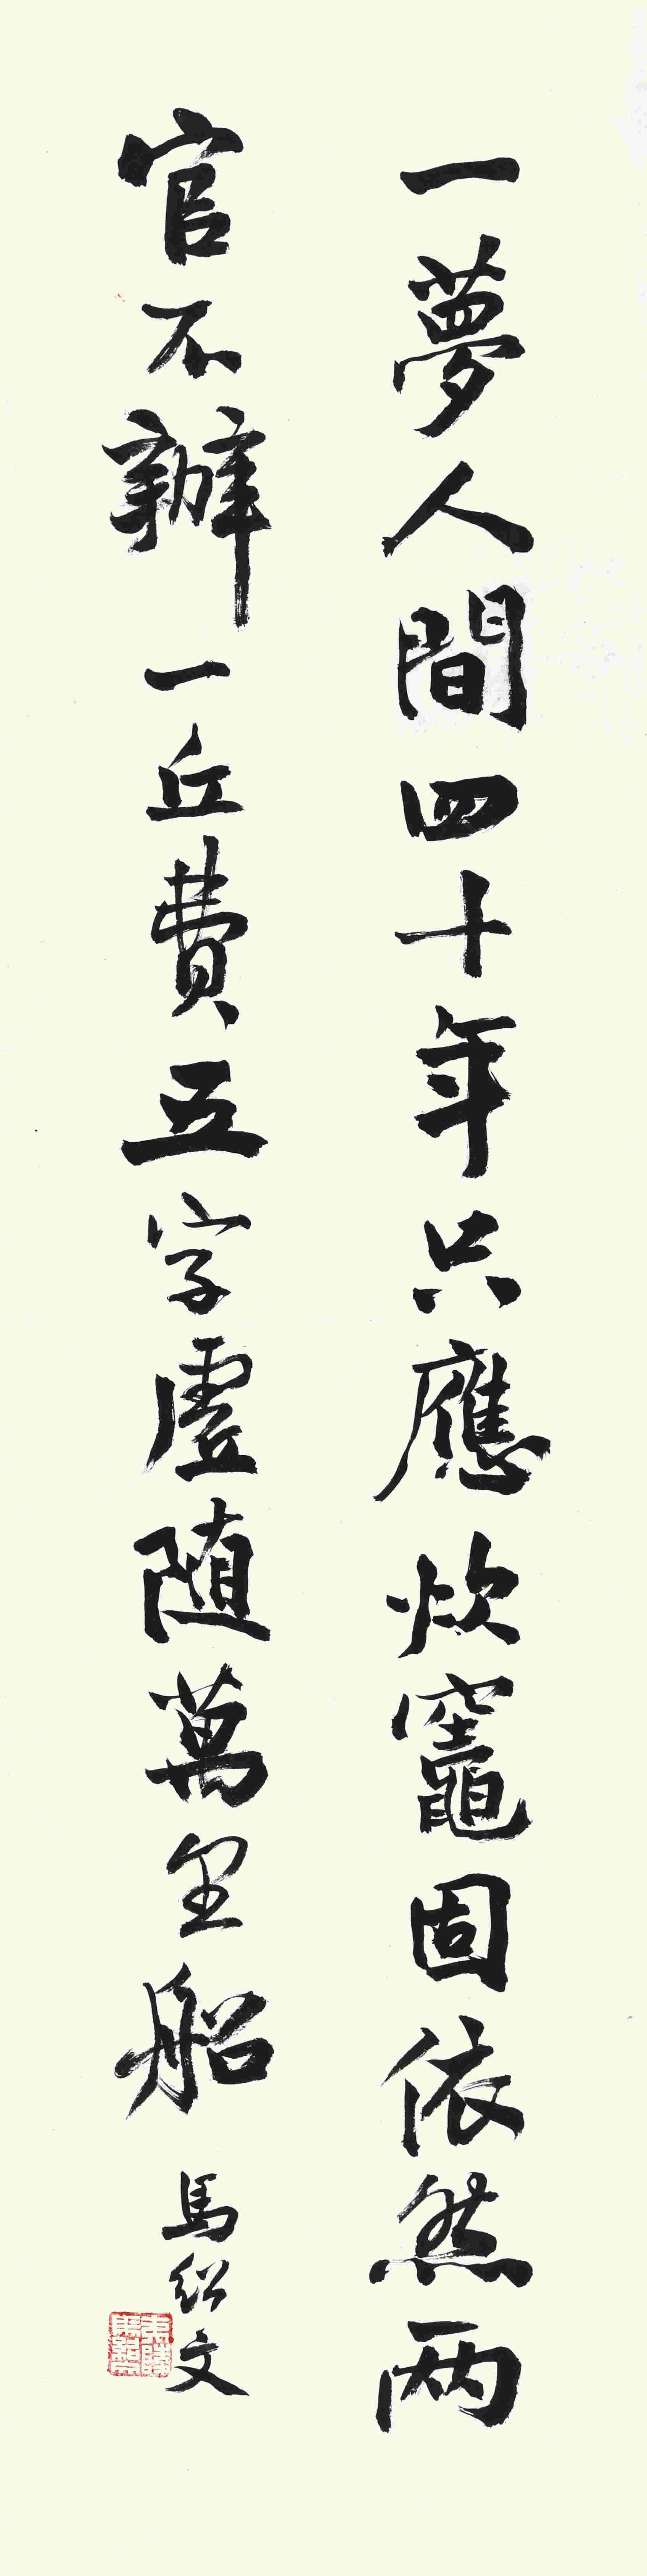 一夢人間四十年只應炊竈固依然两
官不辦一丘費五字虛随萬里船
馬紹文